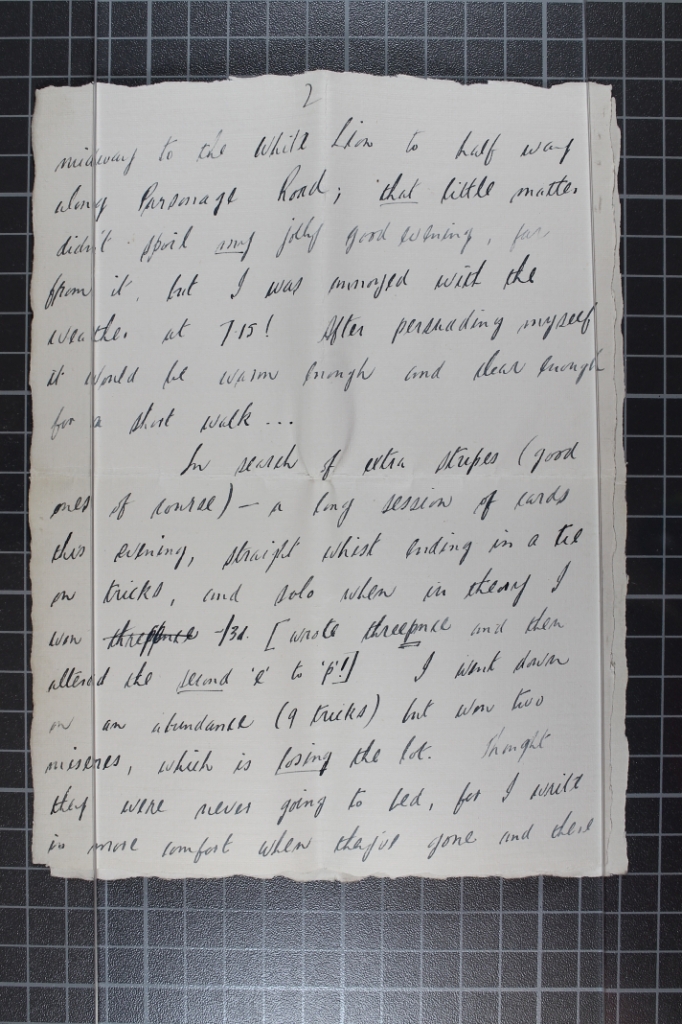 2
midway to the White Lion to half way
along Parsonage Road; that little matter
didn't spoil my jolly good evening, far
from it, but I was annoyed with the
weather at 7.15! After persuading myself
it would be warm enough and clear enough
for a short walk ...
In search of extra stripes (good
ones of course) – a long session of cards
this evening, straight whist ending in a tie
on tricks, and solo when in theory I
won threppnce -/3d. [wrote threepnce and then
altered the second 'e' to 'p'!] I went down
on an abundance (9 tricks) but won two
miseres, which is losing the lot. Thought
they were never going to bed, for I write
in more comfort when they've gone and there